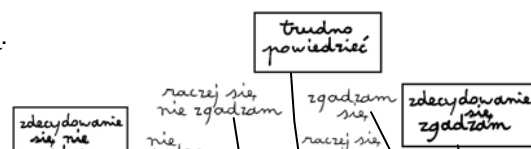 trudno
powiedzieć
raczej się
nie zgadzam
zgadzam
się
zdecydowanie
się
zgadzam
zdecydowanie
się nie
nie
raczej się